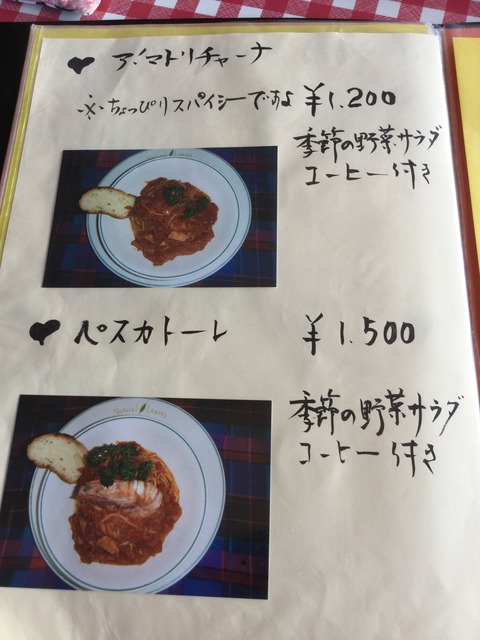 ♥ アマトリチャーナ
※ちょっぴりスパイシーですよ ¥1,200
季節の野菜サラダ
コーヒー付き
♥ペスカトーレ ¥1,500
Natural Leaves
季節の野菜サラダ
コーヒー付き